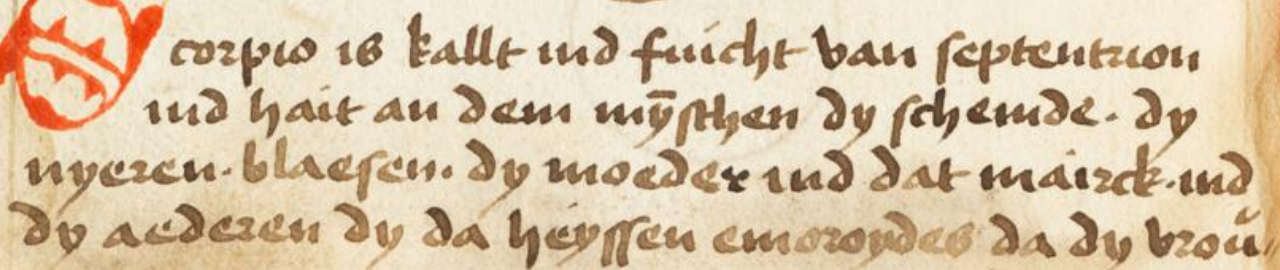 Scorpio is kallt ind fuicht van septentrion
ind hait an dem mȳschen dy schemde. dy
nyeren. blaesen. dy moeder ind dat mairck. ind
dy aederen dy da heyssen emoroydes da dy vroŭ